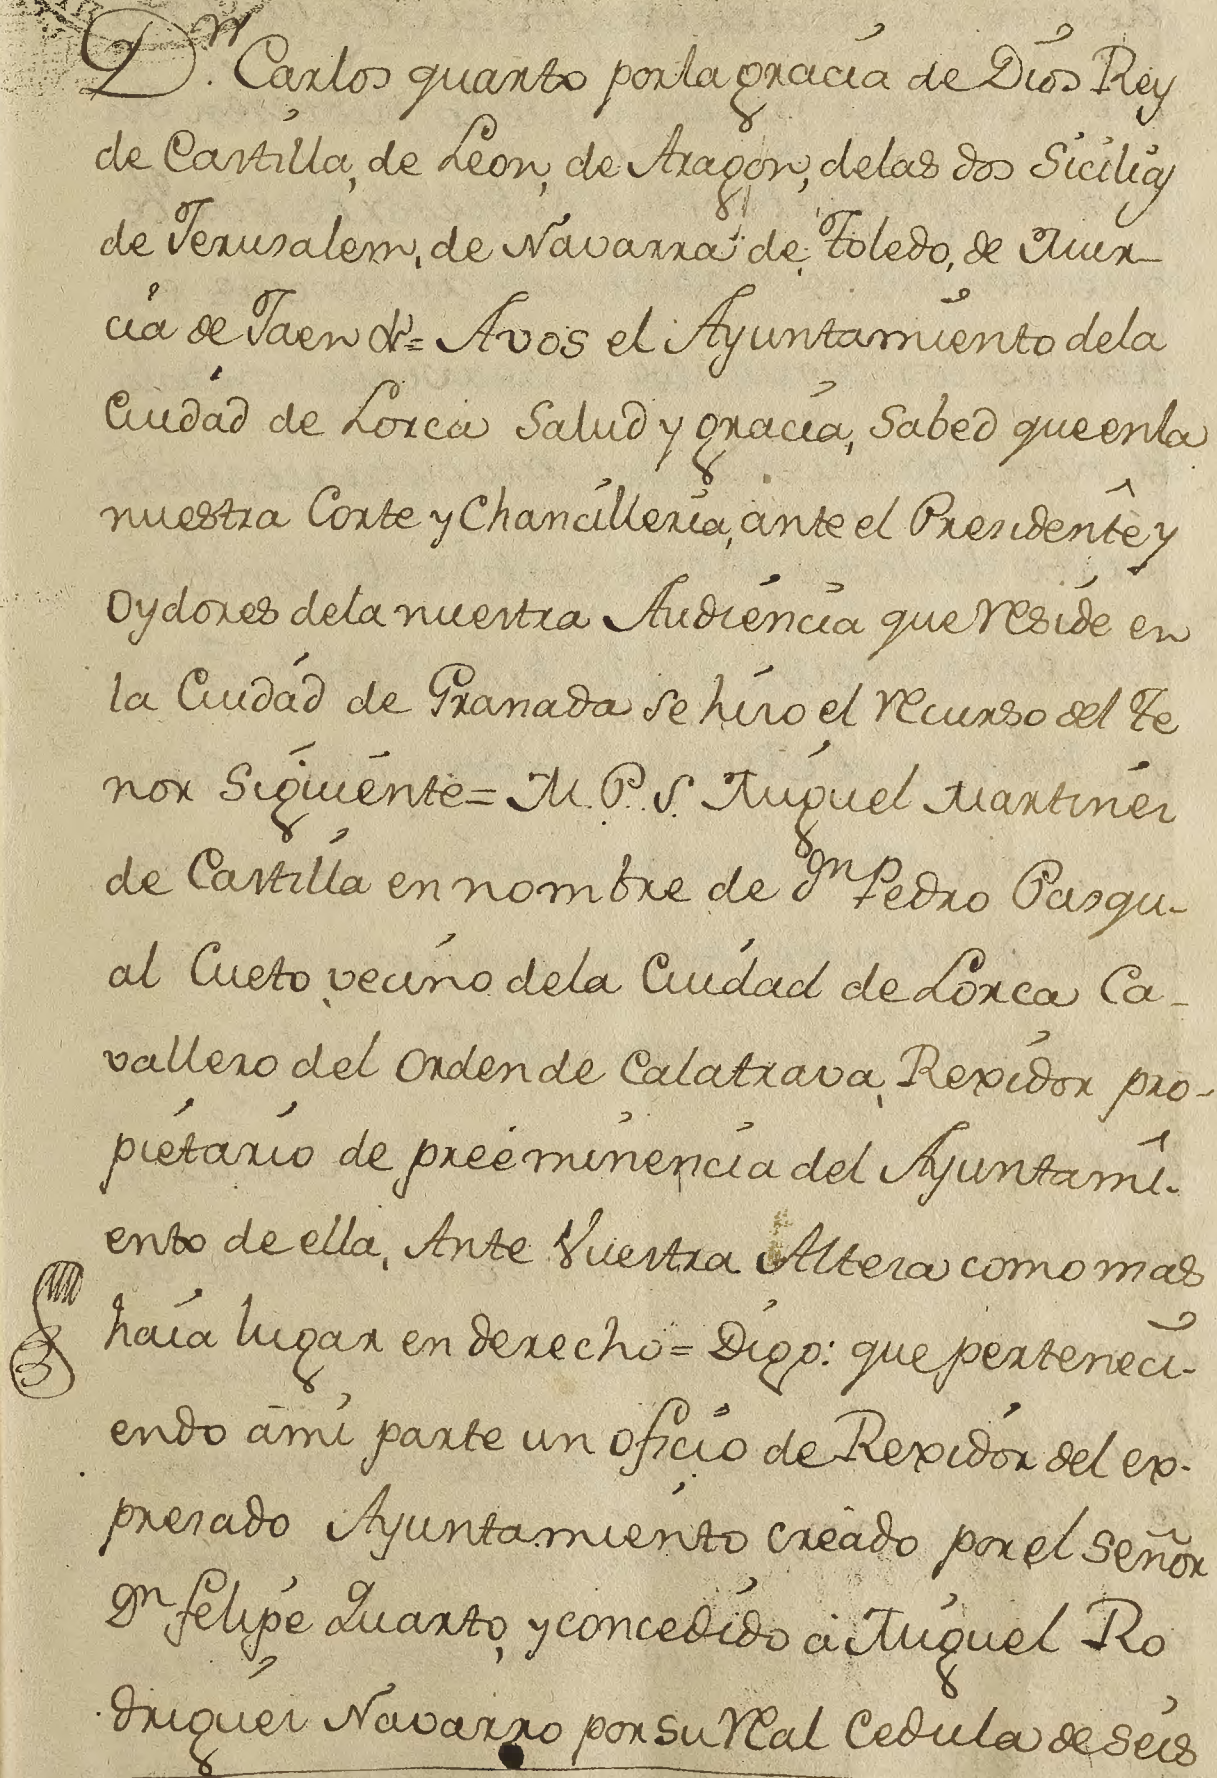 Dn. Carlos quarto por la gracia de Dios Rey
de Castilla, de Leon, de Aragon, delas dos Sicilias
de Jerusalem, de Navarra de Toledo, de Mur-
cia de Jaen &ª= Avos el Ayuntamiento dela
Ciudad de Lorca Salud y gracia, Sabed que enla
nuestra Corte y Chancilleria, ante el Presidente y
Oydores dela nuestra Audiencia que reside en
la Ciudad de Granada se hizo el recurso del te
nor Siguiente= M. P. S. Miguel Martinez
de Castilla en nombre de dn Pedro Pasqu-
al Cueto vecino dela Ciudad de Lorca Ca-
vallero del orden de Calatrava, Rexidor pro-
pietario de preeminencia del Ayuntami-
ento de ella, Ante Vuestra Alteza como mas
haia lugar en derecho= Digo: que perteneci-
endo ami parte un oficio de Rexidor del ex-
presado Ayuntamiento creado por el señor
Dn felipe Quarto, y concedido a Miguel Ro
driguez Navarro por su Real Cedula de seis